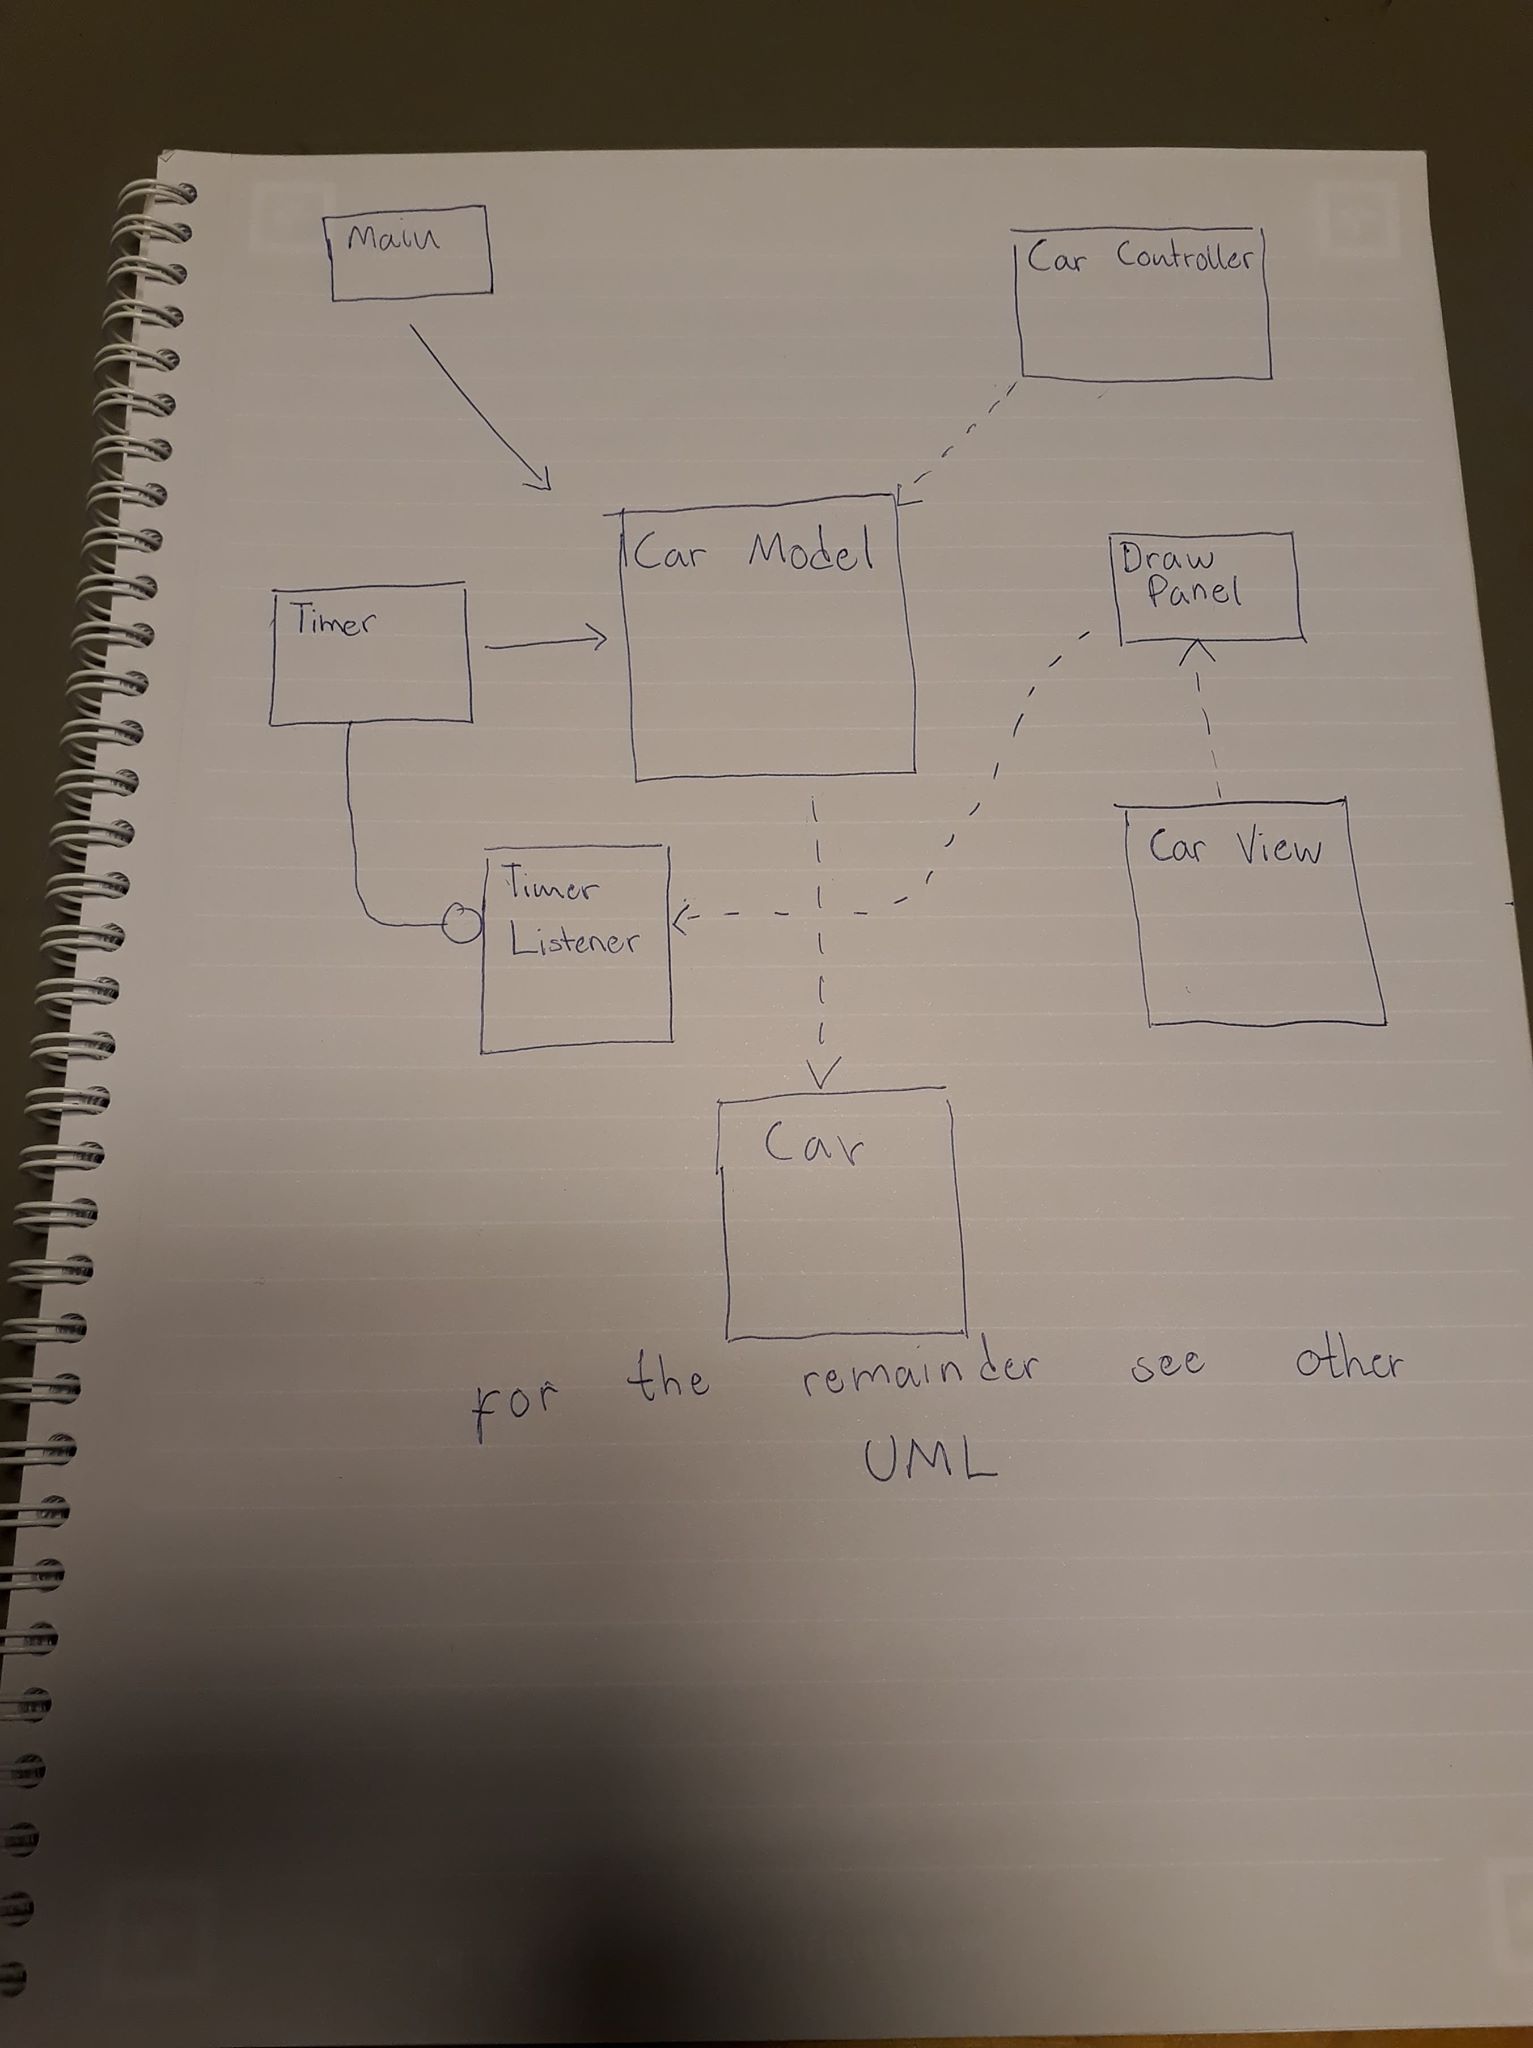 Main
Car Controller
Car Model
Draw
Panel
Timer
Car View
Timer
Listener
Car
for the remainder see other
UML